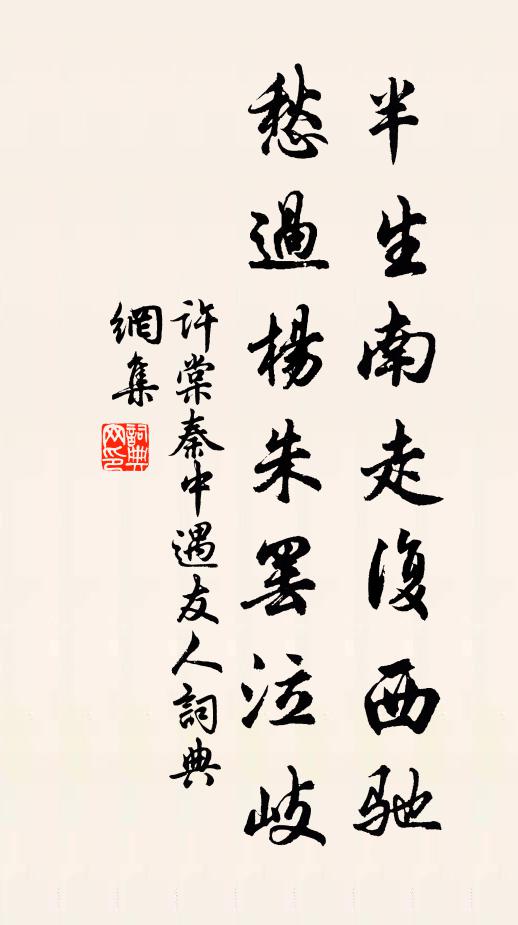 半生南走復西馳
愁過楊朱罷泣岐
許棠秦中遇友人詞典
網集
詞典網印